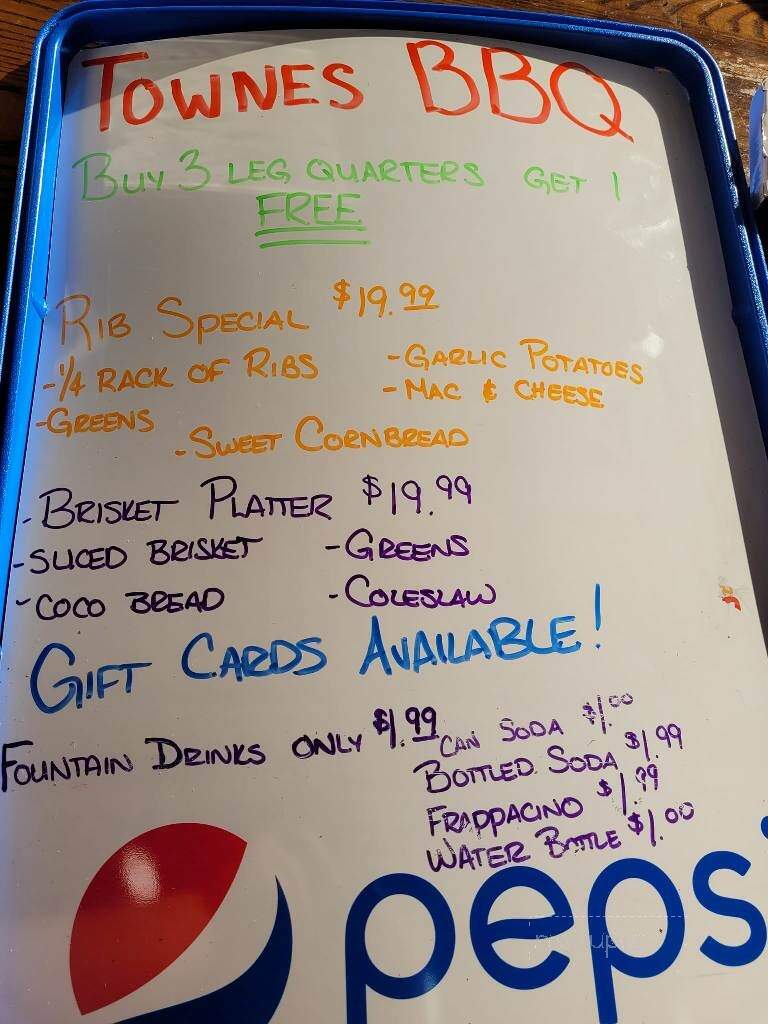 TOWNES BBQ
BUY 3 LEG QUARTERS GET 1
FREE
RIB SPECIAL $19.99
-1/4 RACK OF RIBS -GARLIC POTATOES
-GREENS -MAC & CHEESE
-SWEET CORNBREAD
-BRISKET PLATTER $19.99
-SLICED BRISKET -GREENS
-COCO BREAD -COLESLAW
GIFT CARDS AVAILABLE!
FOUNTAIN DRINKS ONLY $1.99
CAN SODA $1.00
BOTTLED SODA $1.99
FRAPPACINO $1.99
WATER BOTTLE $1.00
pepsi